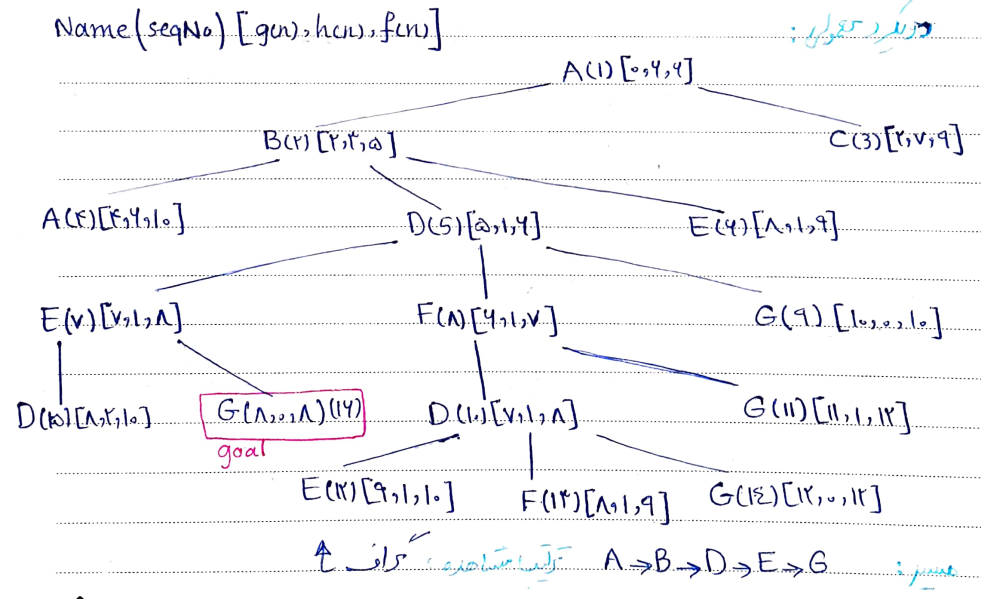 Name(seqNo) [g(n), h(n), f(n)]
رویکرد معمولی:
A(1)[۰,۶,۶]
B(۲)[۲,۳,۵] C(3)[۲,۷,۹]
A(۴)[۴,۶,۱۰] D(5)[۵,۱,۶] E(۶)[۸,۱,۹]
E(۷)[۷,۱,۸] F(۸)[۶,۱,۷] G(۹)[۱۰,۰,۱۰]
D(۱۵)[۸,۲,۱۰] G(۸,۰,۸)(۱۶) D(۱۰)[۷,۱,۸] G(۱۱)[۱۱,۱,۱۲]
goal
E(۱۲)[۹,۱,۱۰] F(۱۳)[۸,۱,۹] G(۱٤)[۱۲,۰,۱۲]
مسیر: A→B→D→E→G ترتیب مشاهده: گراف ↑